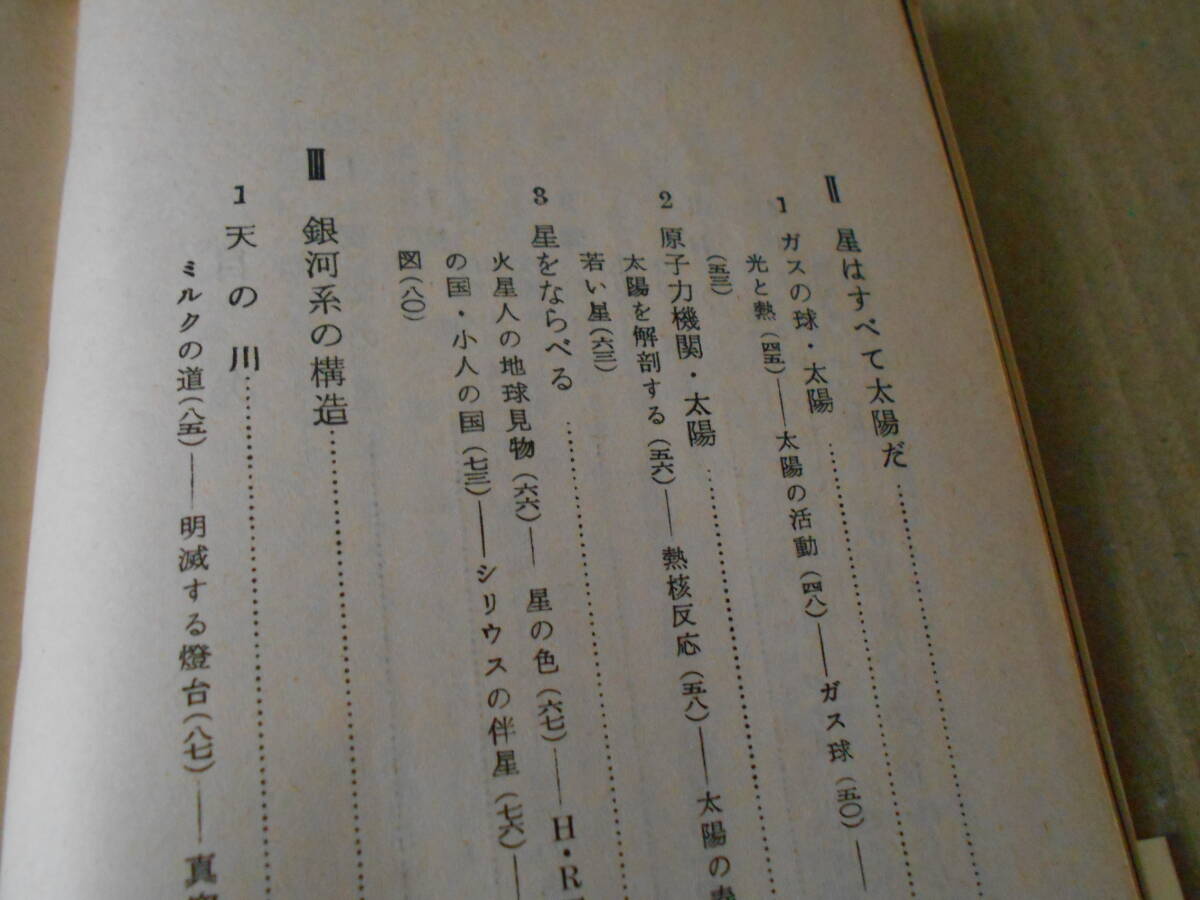 Ⅱ 星はすべて太陽だ
1 ガスの球・太陽
光と熱(四五)——太陽の活動(四八)——ガス球(五〇)——
(五三)
2 原子力機関・太陽
太陽を解剖する(五六)——熱核反応(五八)——太陽の
若い星(六三)
3 星をならべる
火星人の地球見物(六六)——星の色(六七)——H・R
の国・小人の国(七三)——シリウスの伴星(七六)——
図(八〇)
Ⅲ 銀河系の構造
1 天の川
ミルクの道(八五)——明滅する燈台(八七)——真